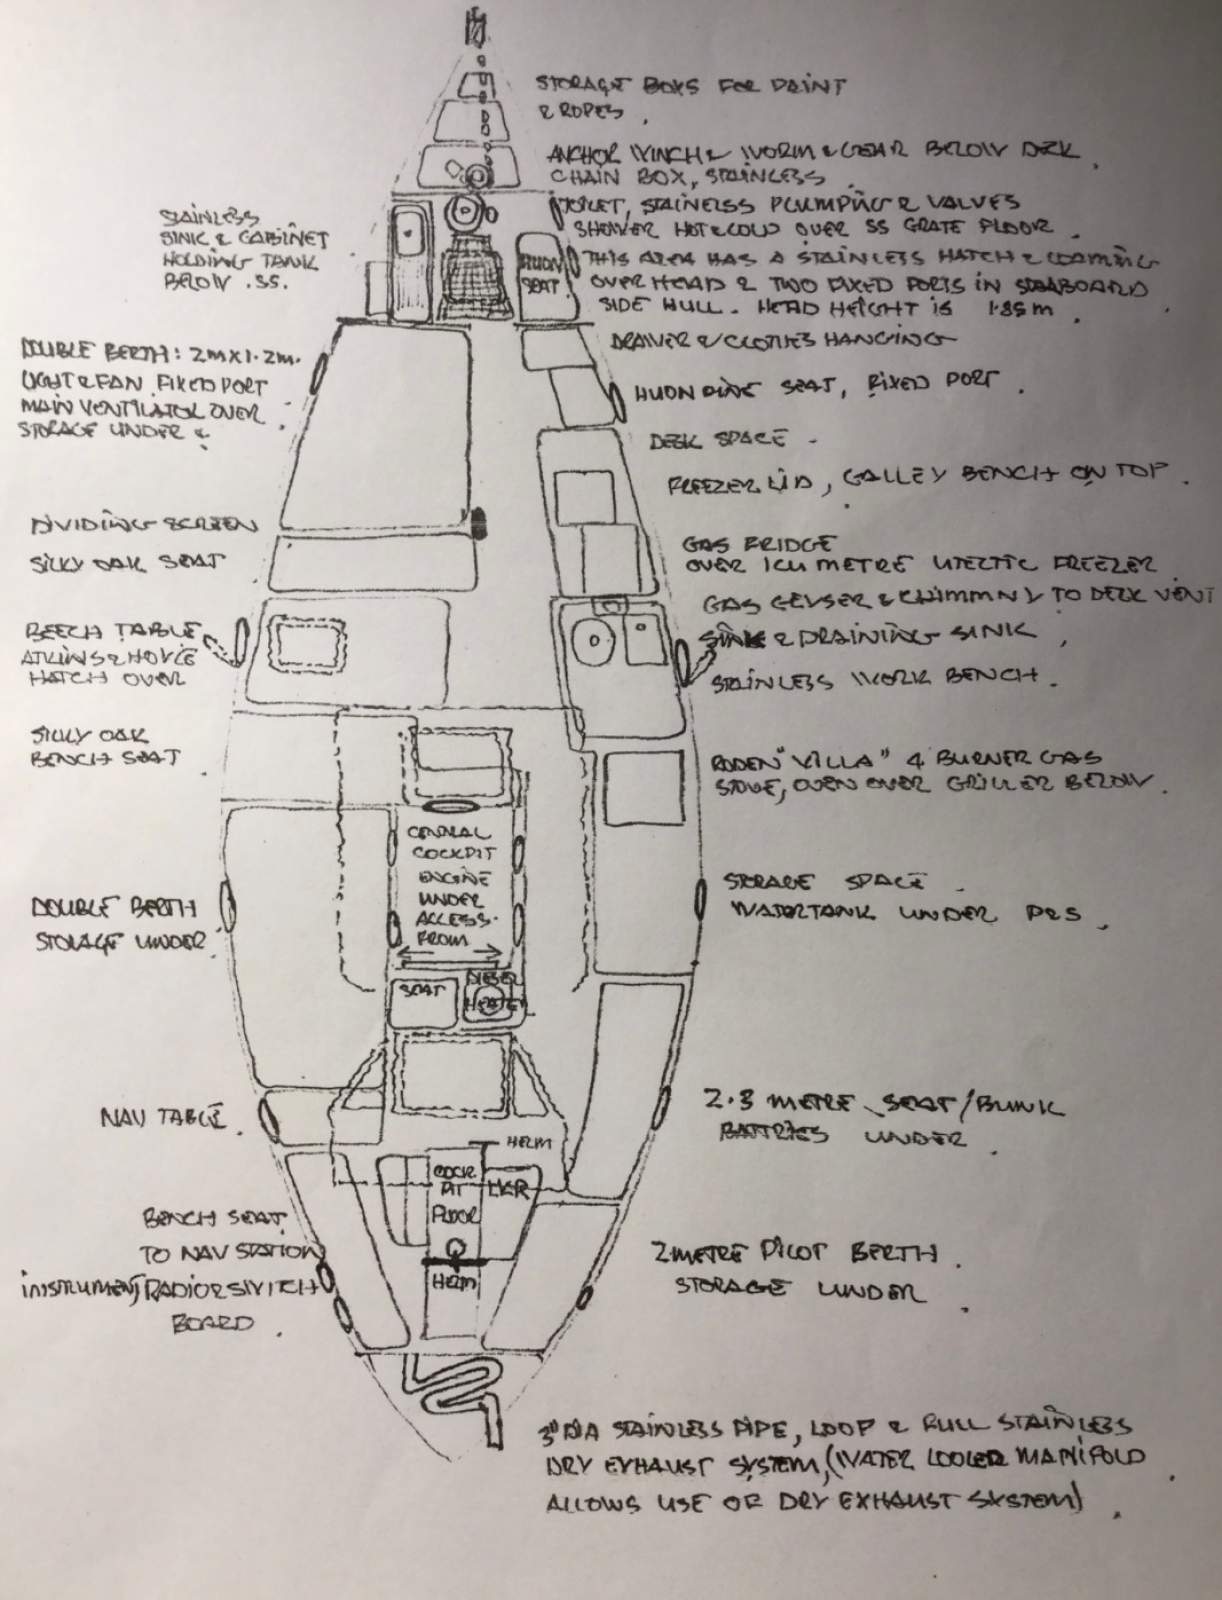 STORAGE BOXS FOR PAINT
& ROPES.
ANCHOR WINCH & WORM & GEAR BELOW DEK.
CHAIN BOX, STAINLESS.
TOILET, STAINLESS PLUMPING & VALVES
SHOWER HOT & COLD OVER SS GRATE FLOOR.
THIS AREA HAS A STAINLESS HATCH & COAMING
OVER HEAD & TWO FIXED PORTS IN STARBOARD
SIDE HULL. HEAD HEIGHT IS 1.85m.
STAINLESS
SINK & CABINET
HOLDING TANK
BELOW .SS.
HUON
SEAT
DRAWER & CLOTHES HANGING
DOUBLE BERTH: 2M X 1.2M.
LIGHT & FAN FIXED PORT
MAIN VENTILATOR OVER
STORAGE UNDER &
HUON PINE SEAT, FIXED PORT.
DESK SPACE -
FREEZER LID, GALLEY BENCH ON TOP.
DIVIDING SCREEN
SILKY OAK SEAT
GAS FRIDGE
OVER 1CU METRE UTECTIC FREEZER
GAS GEYSER & CHIMMNY TO DECK VENT
BEECH TABLE
ATKINS & HOYLE
HATCH OVER
SINK & DRAINING SINK,
STAINLESS WORK BENCH.
SILKY OAK
BENCH SEAT.
"VILLA" 4 BURNER GAS
STOVE, OVEN OVER GRILLER BELOW.
CENTRAL
COCKPIT
ENGINE
UNDER
ACCESS.
FROM
DOUBLE BERTH
STORAGE UNDER.
STORAGE SPACE -
WATERTANK UNDER P&S.
SEAT
DIESEL
HEATER
NAV TABLE.
2.3 METRE SEAT/BUNK
BATTRIES UNDER.
HELM
COCK
PIT
FLOOR
LKR
HELM
BENCH SEAT
TO NAV STATION
INSTRUMENT, RADIO & SWITCH
BOARD.
2 METRE PILOT BERTH.
STORAGE UNDER.
3" DIA STAINLESS PIPE, LOOP & FULL STAINLESS
DRY EXHAUST SYSTEM, (WATER COOLED MANIFOLD
ALLOWS USE OF DRY EXHAUST SYSTEM).